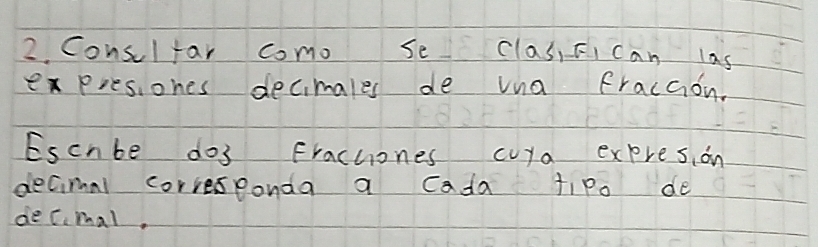 2. Consultar como se clasifican las
expresiones decimales de una fracción.
Escribe dos fracciones cuya expresión
decimal corresponda a cada tipo de
decimal.